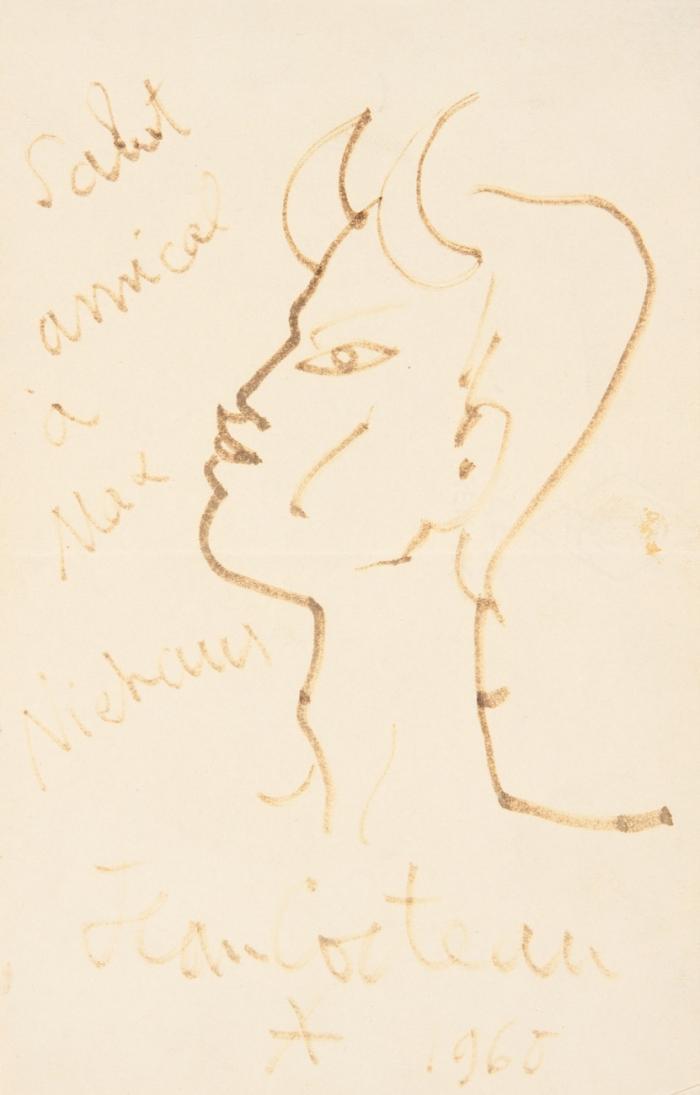 Salut
amical
à
Max
Niehaus
Jean Cocteau
1960